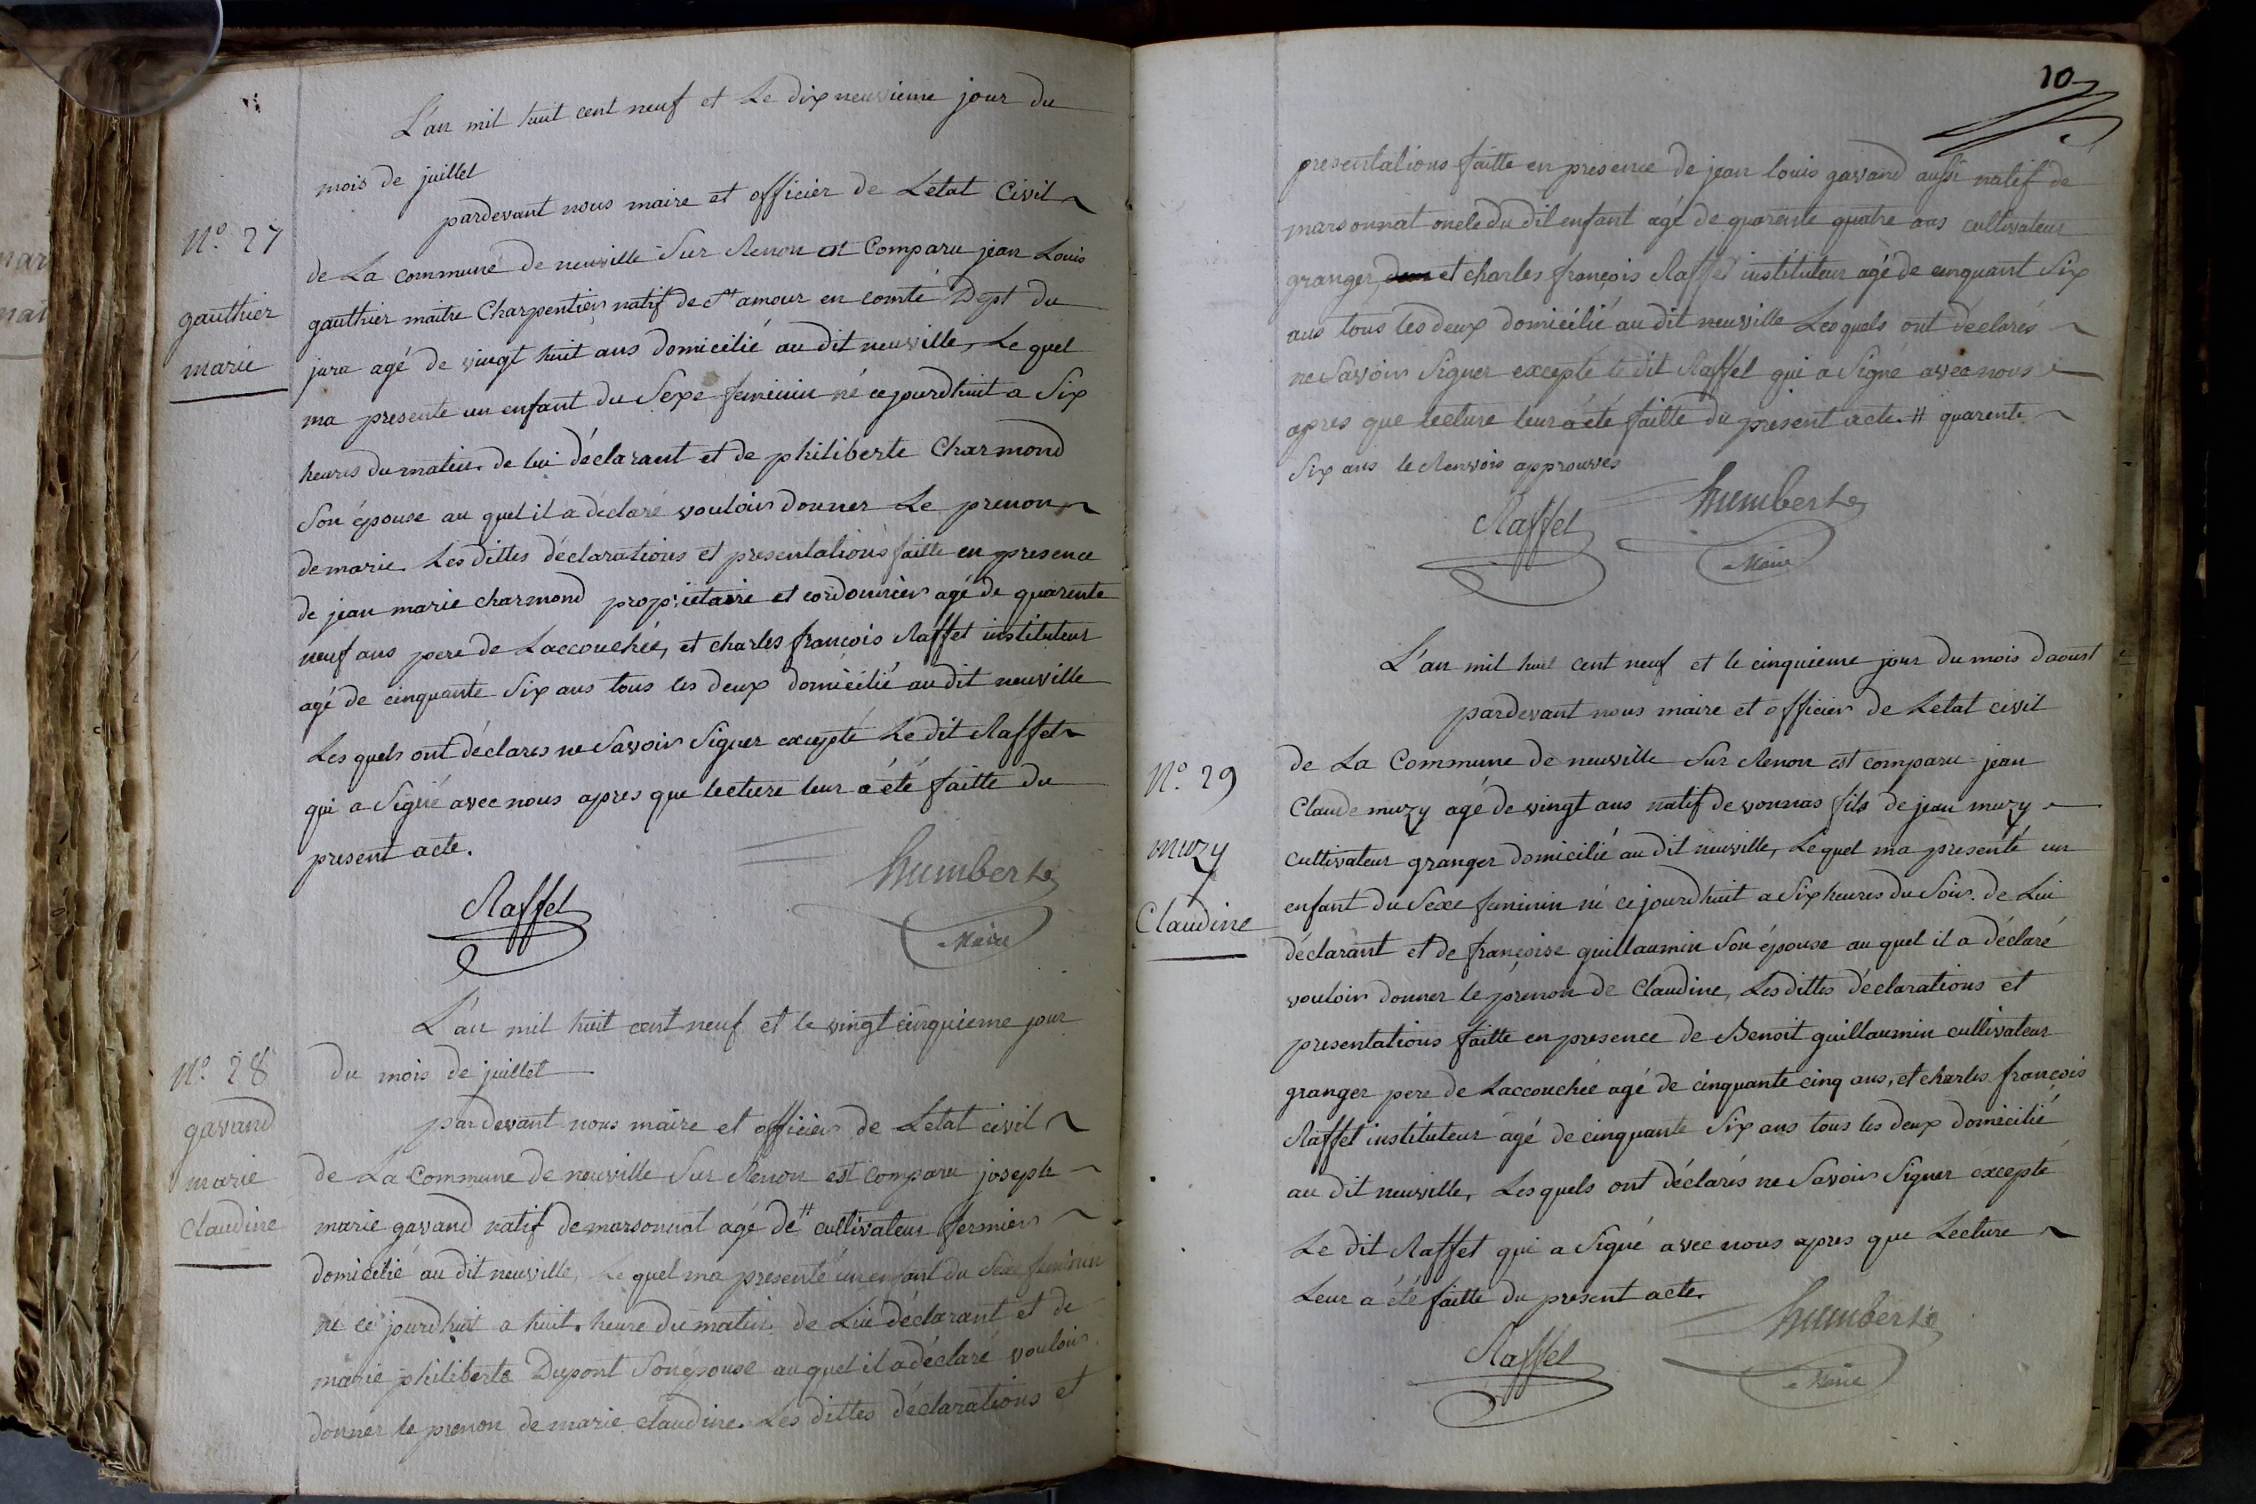 L'an mil huit cent neuf et Le dix neuvieme jour du
mois de juillet
pardevant nous maire et officier de Letat Civil
N.º 27
gauthier
marie
de La commune de neuville Sur Renon est Comparu jean Louis
gauthier maitre Charpentier natif de St amour en comté Dept du
jura agé de vingt huit ans domicilié au dit neuville, Le quel
ma presente un enfant du Sexe feminin né cejourdhuit a Six
heures du matin. de lui déclarant et de philiberte Charmond
Son épouse au quel il a déclaré vouloir donner Le prenon
de marie. Les dittes déclarations et presentations faitte en presence
de jean marie charmond propriétaire et cordonnier agé de quarente
neuf ans pere de Laccouchée, et charles françois Raffet instituteur
agé de cinquante Six ans tous les deux domicilié au dit neuville
Les quels ont déclarés ne Savoir Signer excepté Le dit Raffet
qui a Signé avec nous apres que lecture leur a été faitte du
present acte.
Raffet
humbert
Maire
L'an mil huit cent neuf et le vingt cinquieme jour
du mois de juillet
N.º 28
gavand
marie
Claudine
pardevant nous maire et officier de Letat civil
de La Commune de neuville Sur Renon est comparu joseph
marie gavand natif de marsonnat agé de # cultivateur fermier
domicilié au dit neuville, Le quel ma presenté un enfant du Sexe feminin
né ce jourdhuit a huit heure du matin de Lui déclarant et de
marie philiberte Dupont Son épouse au quel il a déclaré vouloir
donner le prenon de marie claudine. Les dittes déclarations et
10
presentations faitte en presence de jean louis gavand aussi natif de
marsonnat oncle du dit enfant agé de quarente quatre ans cultivateur
granger et charles françois Raffet instituteur agé de cinquant Six
ans tous les deux domicilié au dit neuville Les quels ont déclarés
ne Savoir Signer excepté le dit Raffet qui a Signé avec nous
apres que lecture leur a été faitte du present acte. # quarente
Six ans le Renvois approuvés
Raffet
humbert
Maire
L'an mil huit cent neuf et le cinquieme jour du mois daoust
pardevant nous maire et officier de Letat civil
N.º 29
muzy
Claudine
de La Commune de neuville Sur Renon est comparu jean
Claude muzy agé de vingt ans natif de vonnas fils de jean muzy
cultivateur granger domicilié au dit neuville, Lequel ma presenté un
enfant du Sexe feminin né ce jourdhuit a Six heures du Soir. de Lui
déclarant et de françoise guillaumin Son épouse au quel il a déclaré
vouloir donner le prenon de Claudine, Les dittes déclarations et
presentations faitte en presence de Benoit guillaumin cultivateur
granger pere de Laccouchée agé de cinquante cinq ans, et charles françois
Raffet instituteur agé de cinquante Six ans tous les deux domicilié
au dit neuville, Les quels ont déclarés ne Savoir Signer excepté
Le dit Raffet qui a Signé avec nous apres que Lecture
Leur a été faitte du present acte.
Raffet
humbert
Maire